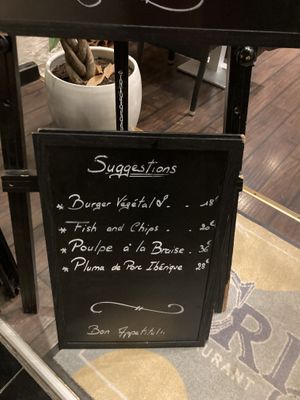 Suggestions
* Burger Végétal . . . 18€
* Fish and Chips . . 20€
* Poulpe à la Braise . 36€
* Pluma de Porc Ibérique 28€
Bon Appétit!..